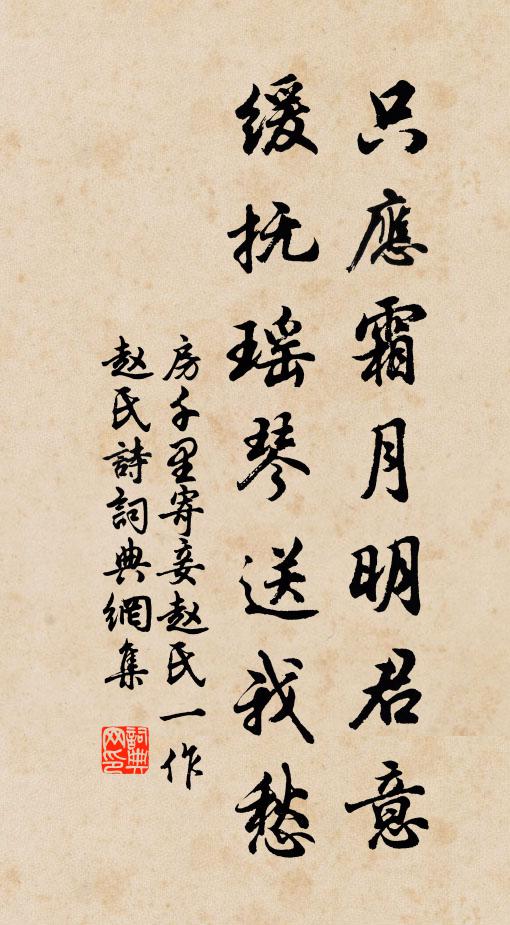 只應霜月明君意
缓抚瑶琴送我愁
房千里寄妾赵氏一作
赵氏詩詞典網集
詞典网印